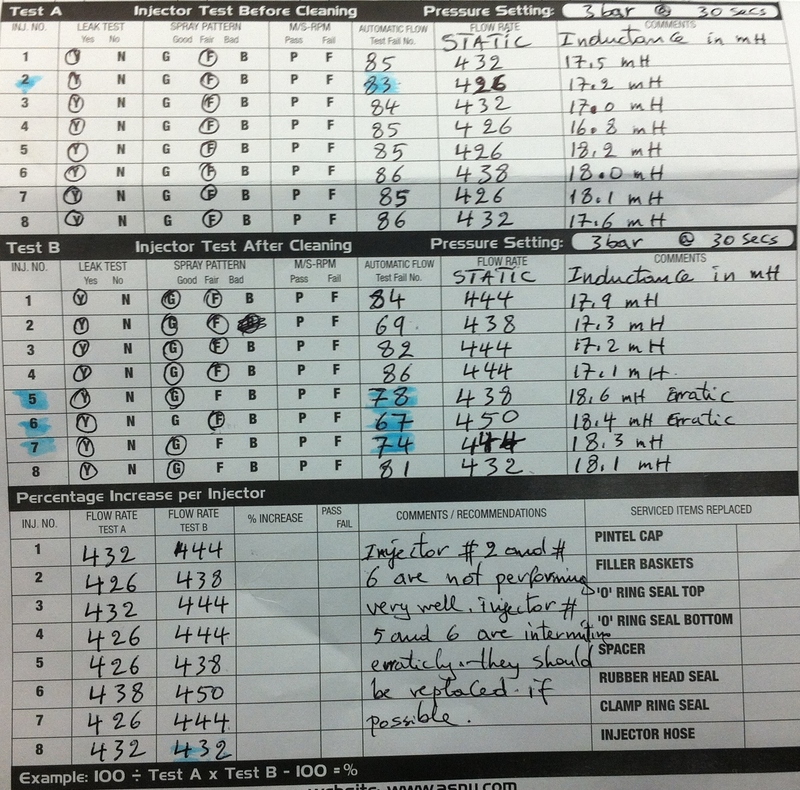 Test A Injector Test Before Cleaning Pressure Setting: 3 bar @ 30 secs
INJ. NO. LEAK TEST SPRAY PATTERN M/S-RPM AUTOMATIC FLOW FLOW RATE COMMENTS
Yes No Good Fair Bad Pass Fail Test Fail No. STATIC Inductance in mH
1 Y N G F B P F 85 432 17.5 mH
2 Y N G F B P F 83 426 17.2 mH
3 Y N G F B P F 84 432 17.0 mH
4 Y N G F B P F 85 426 16.8 mH
5 Y N G F B P F 85 426 18.2 mH
6 Y N G F B P F 86 438 18.0 mH
7 Y N G F B P F 85 426 18.1 mH
8 Y N G F B P F 86 432 17.6 mH
Test B Injector Test After Cleaning Pressure Setting: 3 bar @ 30 secs
INJ. NO. LEAK TEST SPRAY PATTERN M/S-RPM AUTOMATIC FLOW FLOW RATE COMMENTS
Yes No Good Fair Bad Pass Fail Test Fail No. STATIC Inductance in mH
1 Y N G F B P F 84 444 17.9 mH
2 Y N G F 69 438 17.3 mH
3 Y N G F B P F 82 444 17.2 mH
4 Y N G F B P F 86 444 17.1 mH.
5 Y N G F B P F 78 438 18.6 mH Erratic
6 Y N G F B P F 67 450 18.4 mH Erratic
7 Y N G F B P F 74 444 18.3 mH
8 Y N G F B P F 81 432 18.1 mH
Percentage Increase per Injector
INJ. NO. FLOW RATE TEST A FLOW RATE TEST B % INCREASE PASS FAIL COMMENTS / RECOMMENDATIONS SERVICED ITEMS REPLACED
1 432 444 Injector # 2 and # PINTEL CAP
2 426 438 6 are not performing FILLER BASKETS
3 432 444 very well. injector # 'O' RING SEAL TOP
4 426 444 5 and 6 are intermitine 'O' RING SEAL BOTTOM
5 426 438 erraticly. they should SPACER
6 438 450 be replaced if RUBBER HEAD SEAL
7 426 444 possible. CLAMP RING SEAL
8 432 432 INJECTOR HOSE
Example: 100 ÷ Test A x Test B - 100 = %
website: www.asnu.com